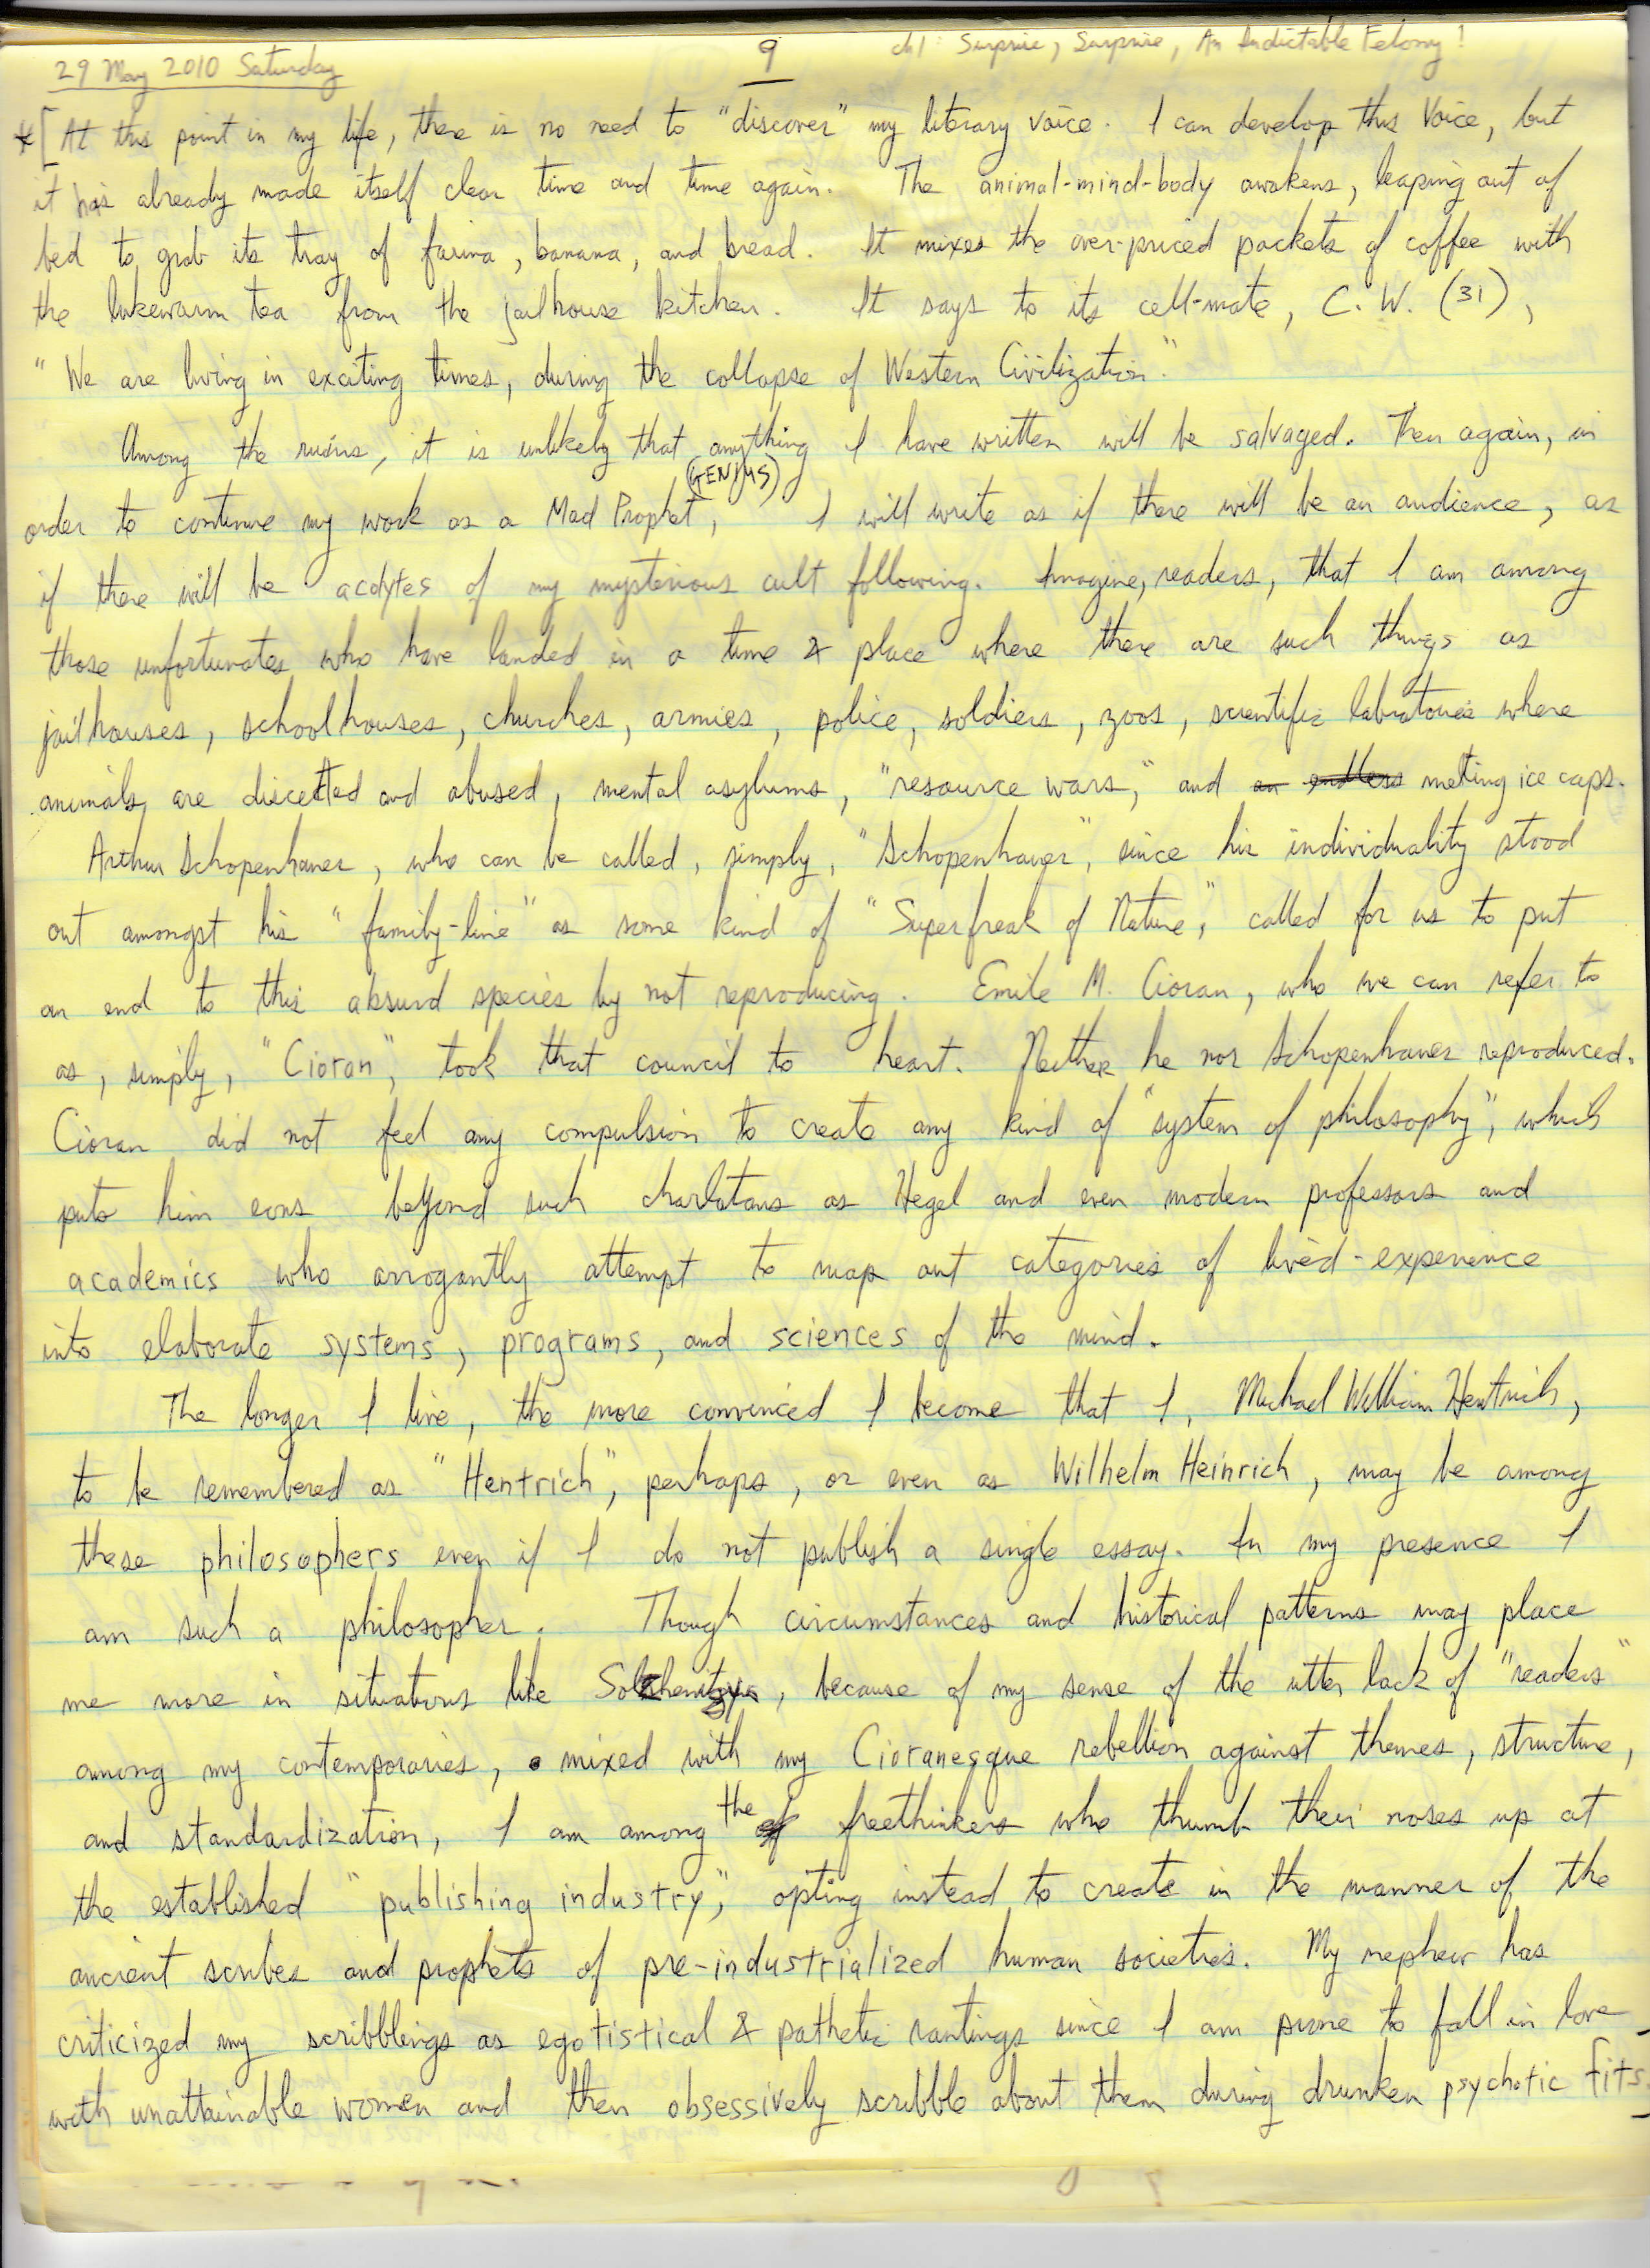 29 May 2010 Saturday
9
ch1: Surprise, Surprise, An Indictable Felony!
*[At this point in my life, there is no need to "discover" my literary voice. I can develop this Voice, but
it has already made itself clear time and time again. The animal-mind-body awakens, leaping out of
bed to grab its tray of farina, banana, and bread. It mixes the over-priced packets of coffee with
the lukewarm tea from the jailhouse kitchen. It says to its cell-mate, C. W. (31),
"We are living in exciting times, during the collapse of Western Civilization."
Among the ruins, it is unlikely that anything I have written will be salvaged. Then again, in
(GENIUS)
order to continue my work as a Mad Prophet, I will write as if there will be an audience, as
if there will be acolytes of my mysterious cult following. Imagine, readers, that I am among
those unfortunates who have landed in a time & place where there are such things as
jailhouses, schoolhouses, churches, armies, police, soldiers, zoos, scientific labratories where
animals are discetted and abused, mental asylums, "resource wars," and an endless melting ice caps.
Arthur Schopenhauer, who can be called, simply, "Schopenhauer", since his individuality stood
out amongst his "family-line" as some kind of "Superfreak of Nature," called for us to put
an end to this absurd species by not reproducing. Emile M. Cioran, who we can refer to
as, simply, "Cioran", took that council to heart. Neither he nor Schopenhauer reproduced.
Cioran did not feel any compulsion to create any kind of "system of philosophy", which
puts him eons beyond such charlatans as Hegel and even modern professors and
academics who arrogantly attempt to map out categories of lived-experience
into elaborate systems, programs, and sciences of the mind.
The longer I live, the more convinced I become that I, Michael William Hentrich,
to be remembered as "Hentrich", perhaps, or even as Wilhelm Heinrich, may be among
these philosophers even if I do not publish a single essay. In my presence I
am such a philosopher. Though circumstances and historical patterns may place
me more in situations like Solzhenitsyn, because of my sense of the utter lack of "readers"
among my contemporaries, mixed with my Cioranesque rebellion against themes, structure,
and standardization, I am among the freethinkers who thumb their noses up at
the established "publishing industry", opting instead to create in the manner of the
ancient scribes and prophets of pre-industrialized human societies. My nephew has
criticized my scribblings as egotistical & pathetic rantings since I am prone to fall in love
with unattainable women and then obsessively scribble about them during drunken psychotic fits.